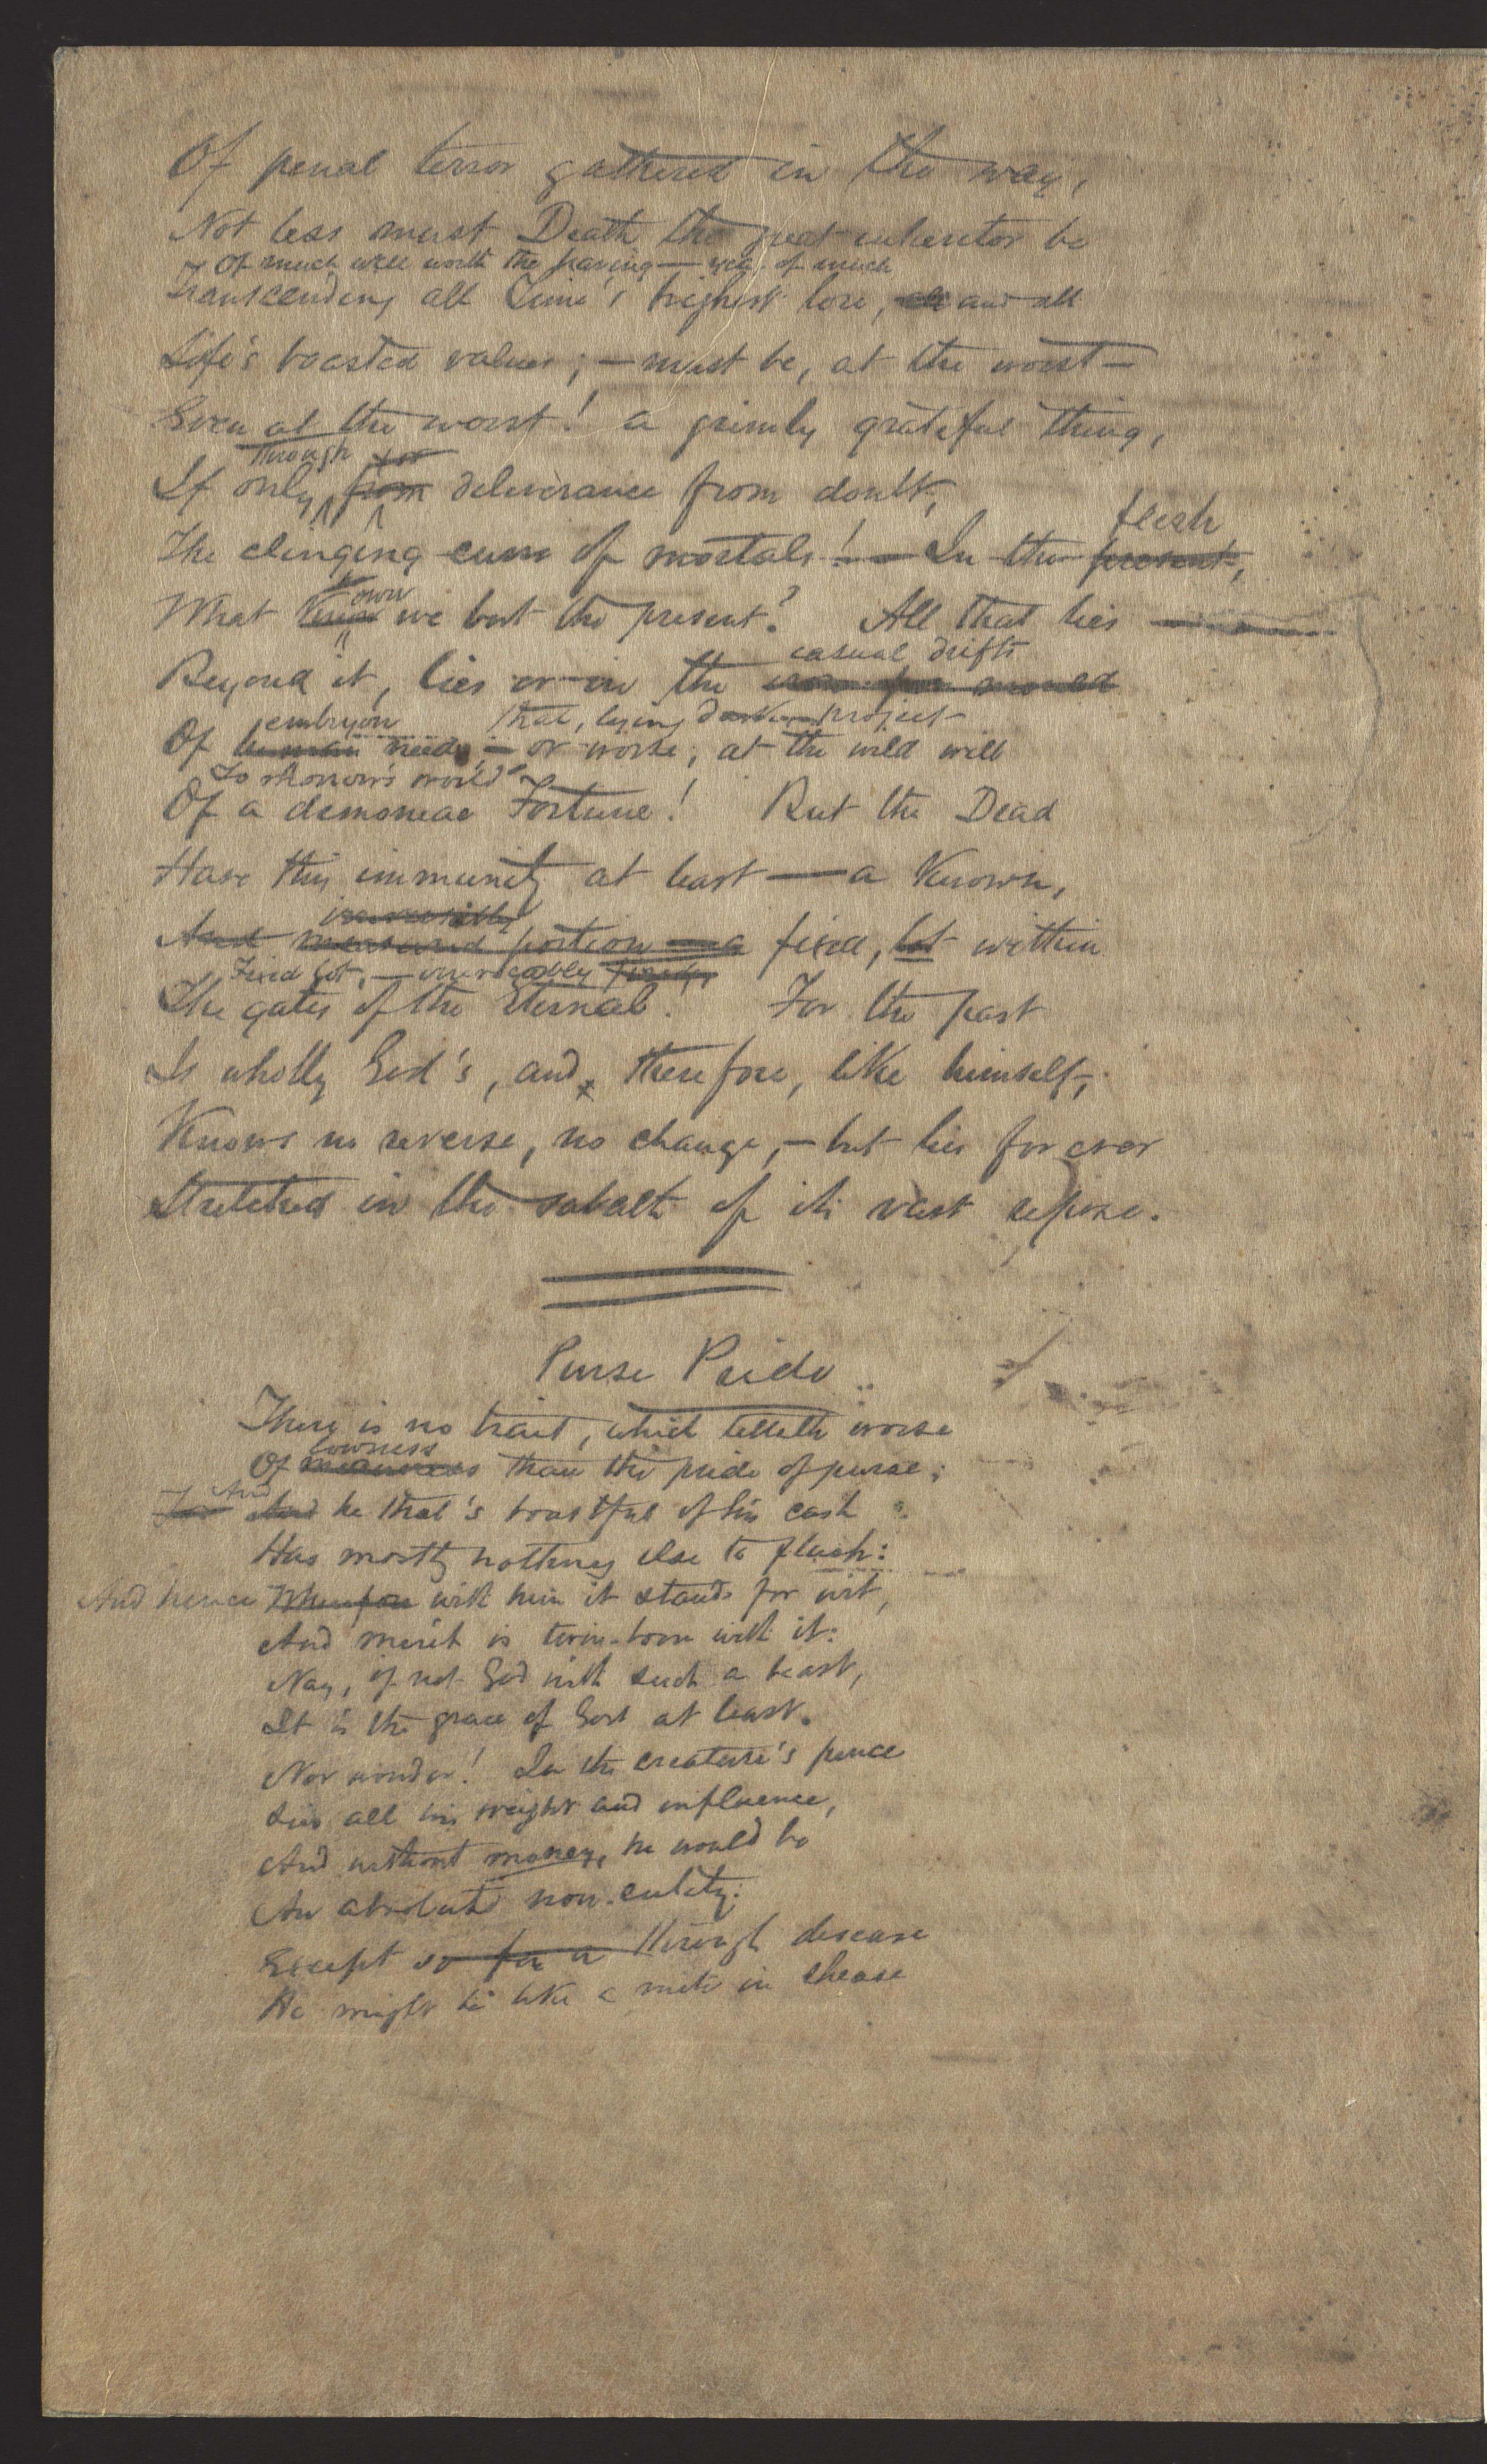 Of penal terror gathered in the way,
Not less must Death the great inheritor be
Of much well worth the having — yea, of much
Transcending all Time's highest lore, and all
Life's boasted values; — must be, at the worst —
Even at the worst! a grimly grateful thing,
through for
If only from deliverance from doubt,
The clinging curse of mortals! — In the present,
flesh
own
What know we but the present? All that lies
casual drifts
Beyond it, lies or in the
embryon that, lying darken project
Of human needs, — or worse, at the wild will
To Morrow's world
Of a demoniac Fortune! But the Dead
Have this immunity at least — a Known,
irrevocably
And measured portion — a fixed, lot within
Fixed lot, — irrevocably
The gates of the Eternal! For the past
Is wholly God's, and, therefore, like himself,
Knows no reverse, no change, — but lies for ever
Stretched in the sabbath of its vast repose.
Purse Pride
There is no trait, which telleth worse
lowness
Of meanness than the pride of purse;
And
For And he that's boastful of his cash
Has mostly nothing else to flash:
And hence Wherefore with him it stands for wit,
And merit is twin-born with it:
Nay, if not God with such a beast,
It is the grace of God at least.
Nor wonder! In the creature's pence
Lies all his weight and influence,
And without money, he would be
An absolute non-entity:
Except so far as through disease
He might be like a mite in cheese